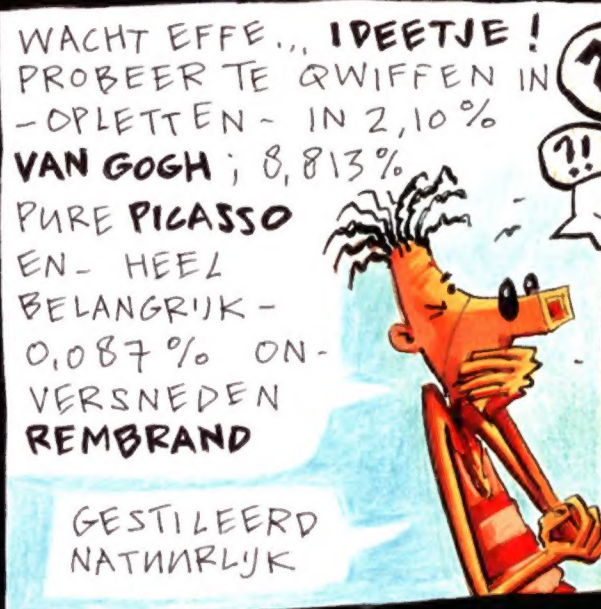 WACHT EFFE... IDEETJE!
PROBEER TE QWIFFEN IN
-OPLETTEN- IN 2,10%
VAN GOGH; 8,813%
PURE PICASSO
EN- HEEL
BELANGRIJK-
0,087% ON-
VERSNEDEN
REMBRAND
?
?!
GESTILEERD
NATUURLIJK